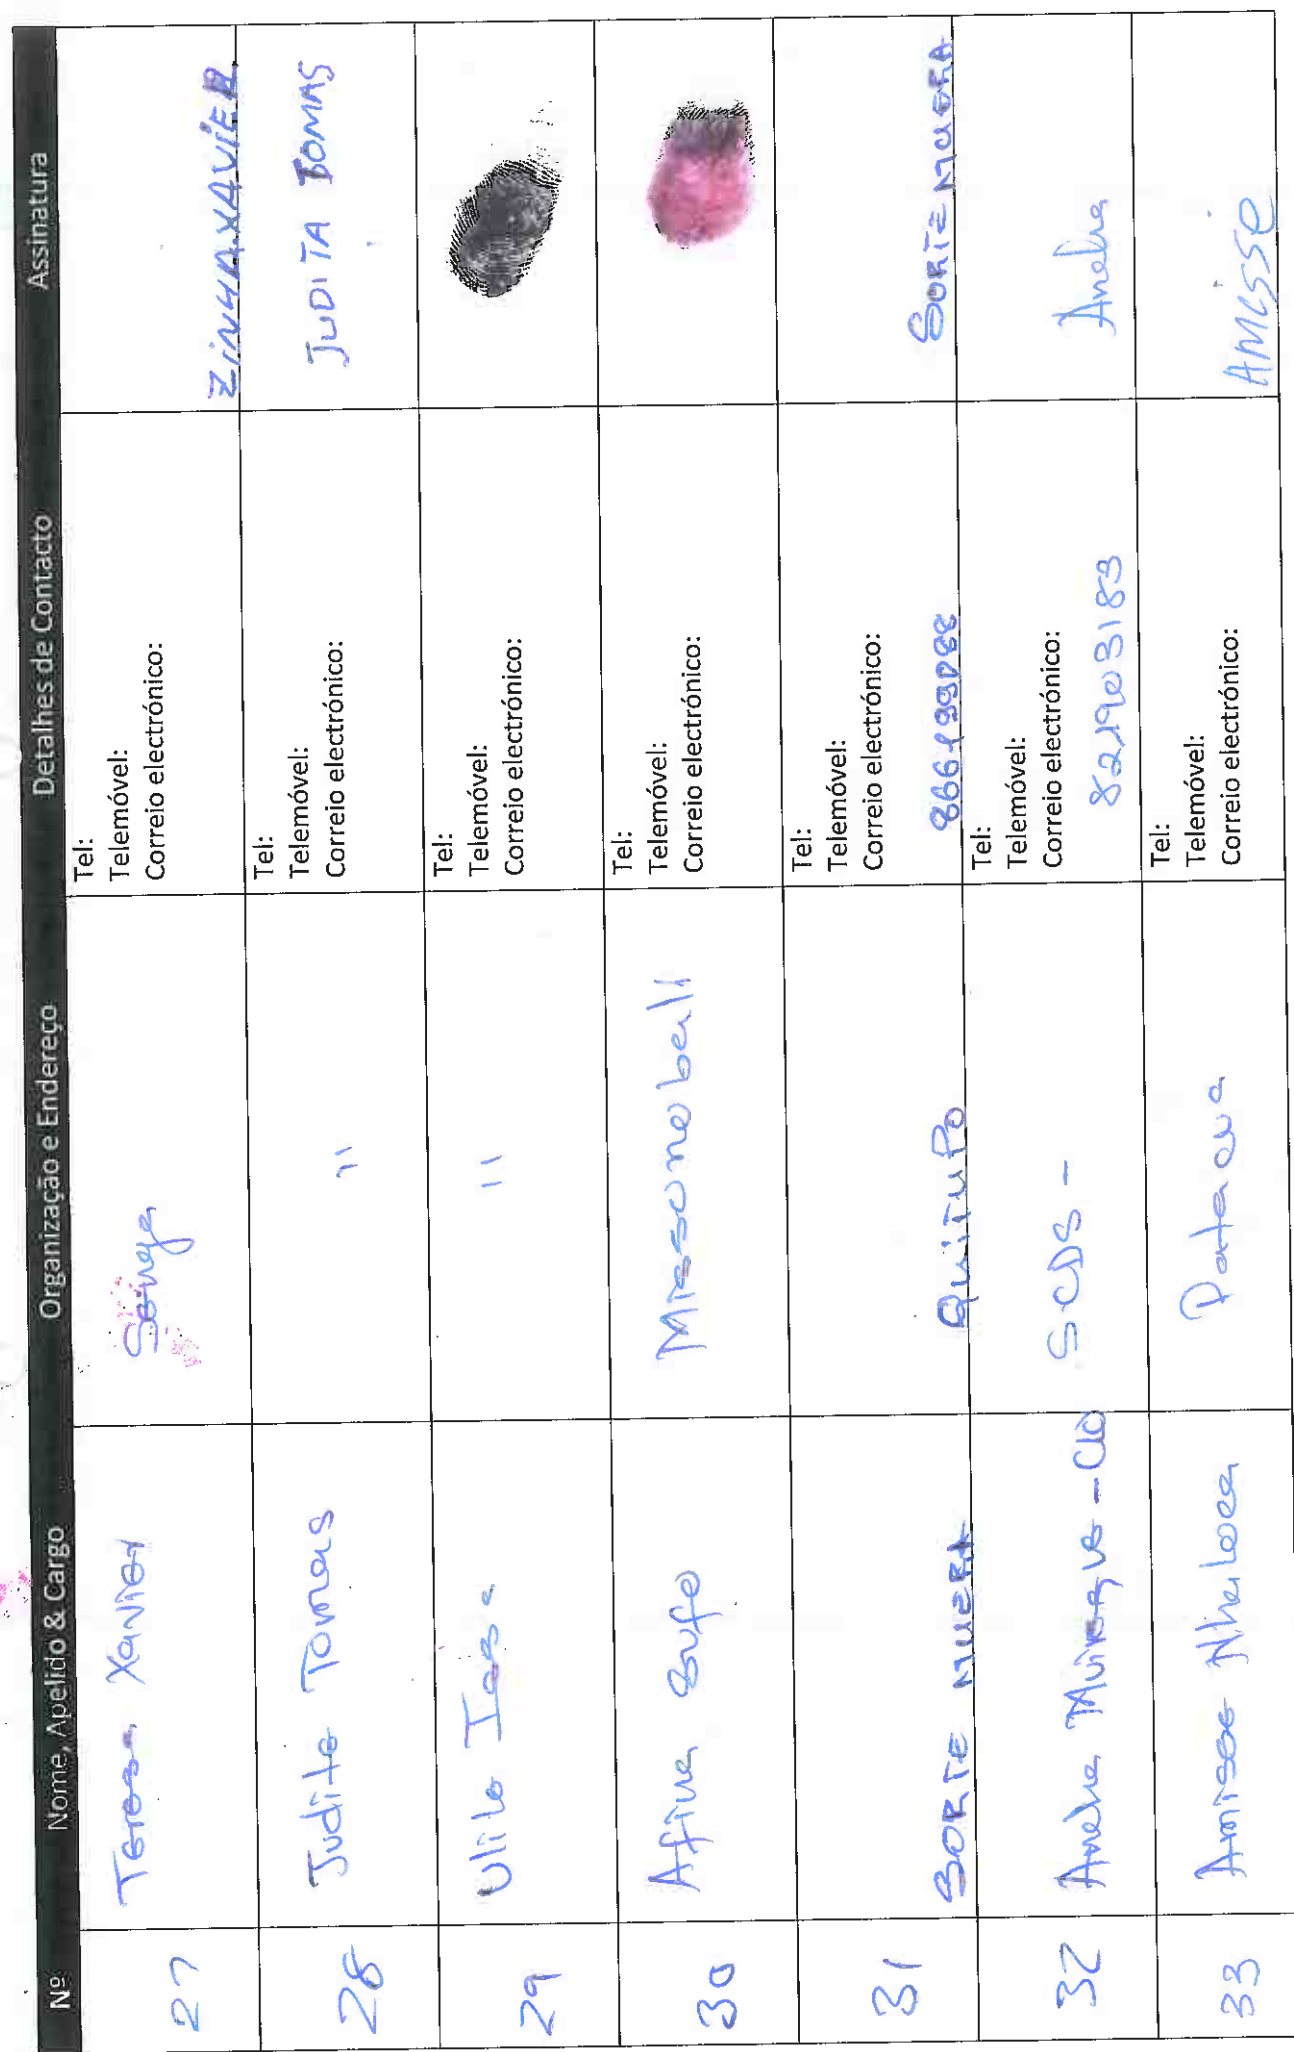 Nº Nome, Apelido & Cargo Organização e Endereço Detalhes de Contacto Assinatura
27 Teresa Xavier Senga Tel:
Telemóvel:
Correio electrónico:
ZINHA XAVIER
28 Judite Tomas " Tel:
Telemóvel:
Correio electrónico:
JUDITA TOMAS
29 " Tel:
Telemóvel:
Correio electrónico:
30 Afina Sufo Tel:
Telemóvel:
Correio electrónico:
31 SORTE MUERA QUITUPO Tel:
Telemóvel:
Correio electrónico:
SORTE MUERA
32 SCDS - Tel:
Telemóvel:
Correio electrónico:
821903183
33 Amisse Patacua Tel:
Telemóvel:
Correio electrónico:
AMISSE